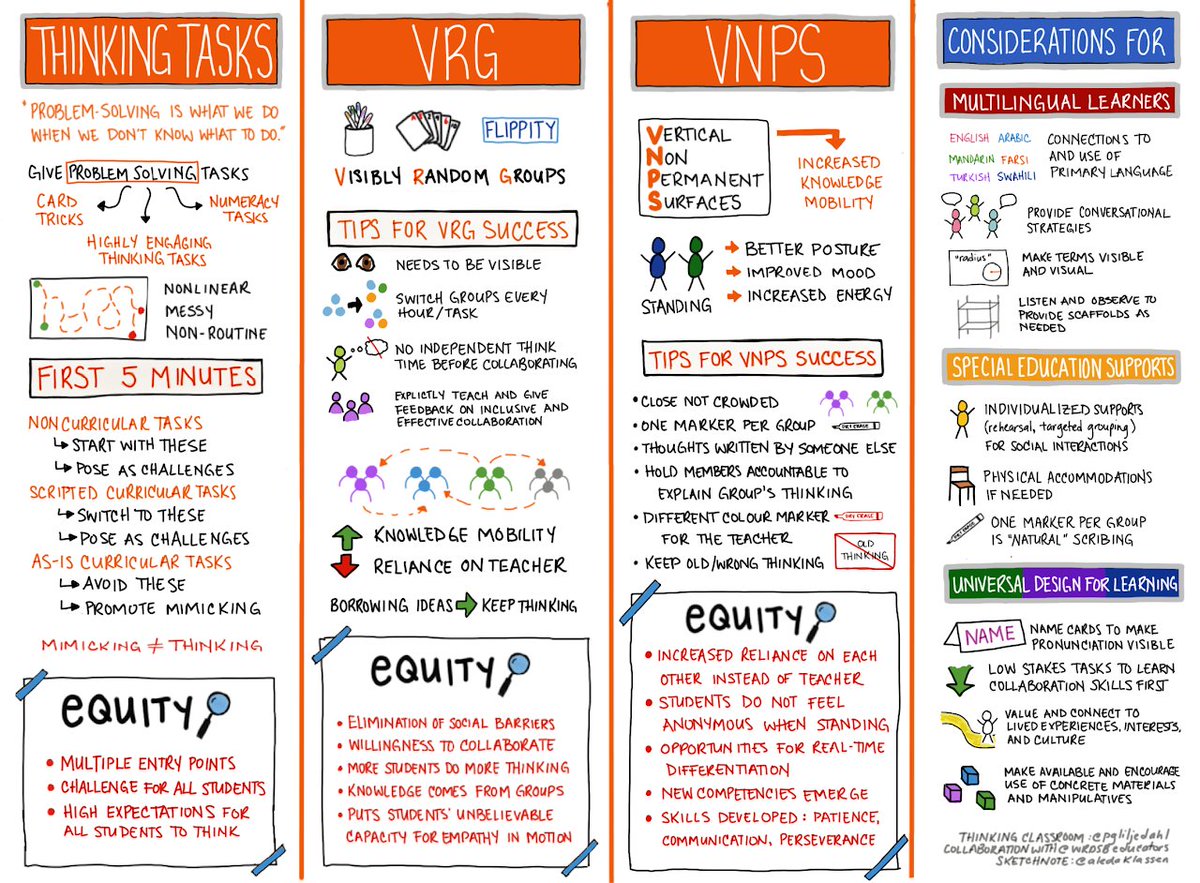 THINKING TASKS
"PROBLEM-SOLVING IS WHAT WE DO
WHEN WE DON'T KNOW WHAT TO DO."
GIVE PROBLEM SOLVING TASKS
CARD
TRICKS
NUMERACY
TASKS
HIGHLY ENGAGING
THINKING TASKS
NONLINEAR
MESSY
NON-ROUTINE
FIRST 5 MINUTES
NONCURRICULAR TASKS
START WITH THESE
POSE AS CHALLENGES
SCRIPTED CURRICULAR TASKS
SWITCH TO THESE
POSE AS CHALLENGES
AS-IS CURRICULAR TASKS
AVOID THESE
PROMOTE MIMICKING
MIMICKING ≠ THINKING
EQUITY
• MULTIPLE ENTRY POINTS
• CHALLENGE FOR ALL STUDENTS
• HIGH EXPECTATIONS FOR
ALL STUDENTS TO THINK
VRG
FLIPPITY
VISIBLY RANDOM GROUPS
TIPS FOR VRG SUCCESS
NEEDS TO BE VISIBLE
SWITCH GROUPS EVERY
HOUR/TASK
NO INDEPENDENT THINK
TIME BEFORE COLLABORATING
EXPLICTLY TEACH AND GIVE
FEEDBACK ON INCLUSIVE AND
EFFECTIVE COLLABORATION
KNOWLEDGE MOBILITY
RELIANCE ON TEACHER
BORROWING IDEAS KEEP THINKING
EQUITY
• ELIMINATION OF SOCIAL BARRIERS
• WILLINGNESS TO COLLABORATE
• MORE STUDENTS DO MORE THINKING
• KNOWLEDGE COMES FROM GROUPS
• PUTS STUDENTS' UNBELIEVABLE
CAPACITY FOR EMPATHY IN MOTION
VNPS
VERTICAL
NON
PERMANENT
SURFACES
INCREASED
KNOWLEDGE
MOBILITY
STANDING
BETTER POSTURE
IMPROVED MOOD
INCREASED ENERGY
TIPS FOR VNPS SUCCESS
• CLOSE NOT CROWDED
• ONE MARKER PER GROUP
DRY ERASE
• THOUGHTS WRITTEN BY SOMEONE ELSE
• HOLD MEMBERS ACCOUNTABLE TO
EXPLAIN GROUP'S THINKING
• DIFFERENT COLOUR MARKER
DRY ERASE
FOR THE TEACHER
OLD
THINKING
• KEEP OLD/WRONG THINKING
EQUITY
• INCREASED RELIANCE ON EACH
OTHER INSTEAD OF TEACHER
• STUDENTS DO NOT FEEL
ANONYMOUS WHEN STANDING
• OPPORTUNITIES FOR REAL-TIME
DIFFERENTIATION
• NEW COMPETENCIES EMERGE
• SKILLS DEVELOPED: PATIENCE,
COMMUNICATION, PERSEVERANCE
CONSIDERATIONS FOR
MULTILINGUAL LEARNERS
ENGLISH ARABIC
MANDARIN FARSI
TURKISH SWAHILI
CONNECTIONS TO
AND USE OF
PRIMARY LANGUAGE
PROVIDE CONVERSATIONAL
STRATEGIES
"radius"
MAKE TERMS VISIBLE
AND VISUAL
LISTEN AND OBSERVE TO
PROVIDE SCAFFOLDS AS
NEEDED
SPECIAL EDUCATION SUPPORTS
INDIVIDUALIZED SUPPORTS
(rehearsal, targeted grouping)
FOR SOCIAL INTERACTIONS
PHYSICAL ACCOMMODATIONS
IF NEEDED
DRY ERASE
ONE MARKER PER GROUP
IS "NATURAL" SCRIBING
UNIVERSAL DESIGN FOR LEARNING
NAME
NAME CARDS TO MAKE
PRONUNCIATION VISIBLE
LOW STAKES TASKS TO LEARN
COLLABORATION SKILLS FIRST
VALUE AND CONNECT TO
LIVED EXPERIENCES, INTERESTS,
AND CULTURE
MAKE AVAILABLE AND ENCOURAGE
USE OF CONCRETE MATERIALS
AND MANIPULATIVES
THINKING CLASSROOM: @pgliljedahl
COLLABORATION WITH @WRDSBeducators
SKETCHNOTE: @aledaklassen